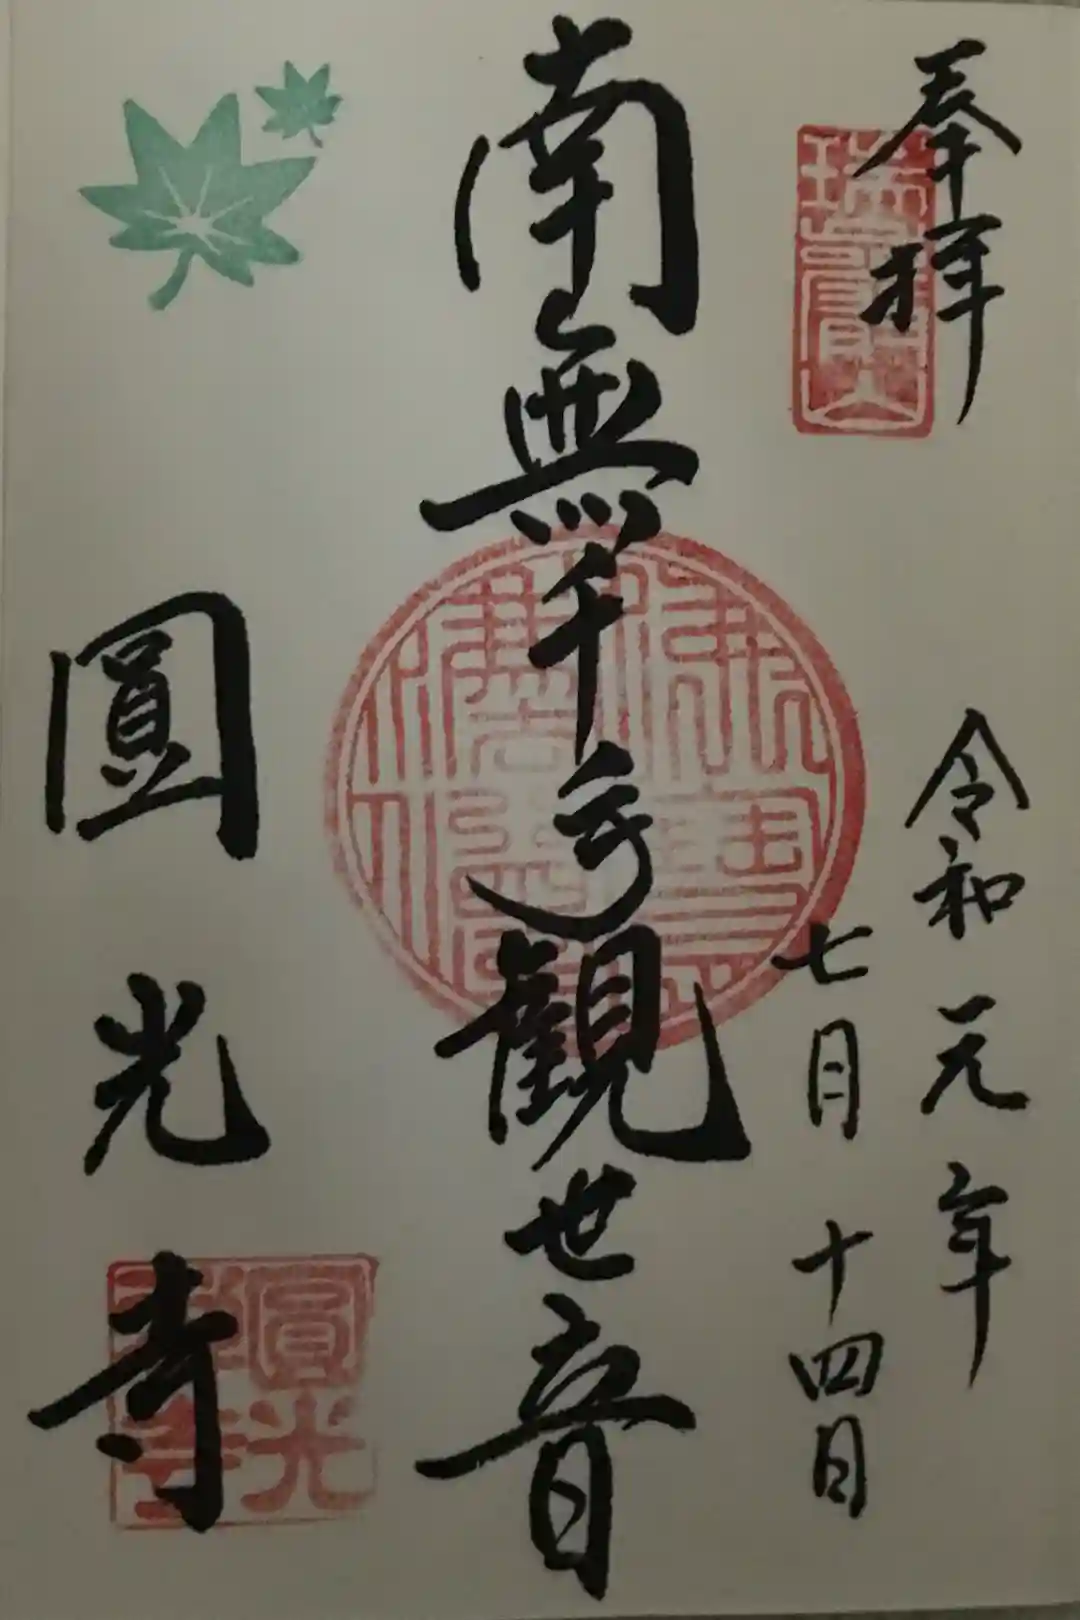 奉拝
令和元年
七月十四日
南無千手観世音
圓光寺
圓光
寺